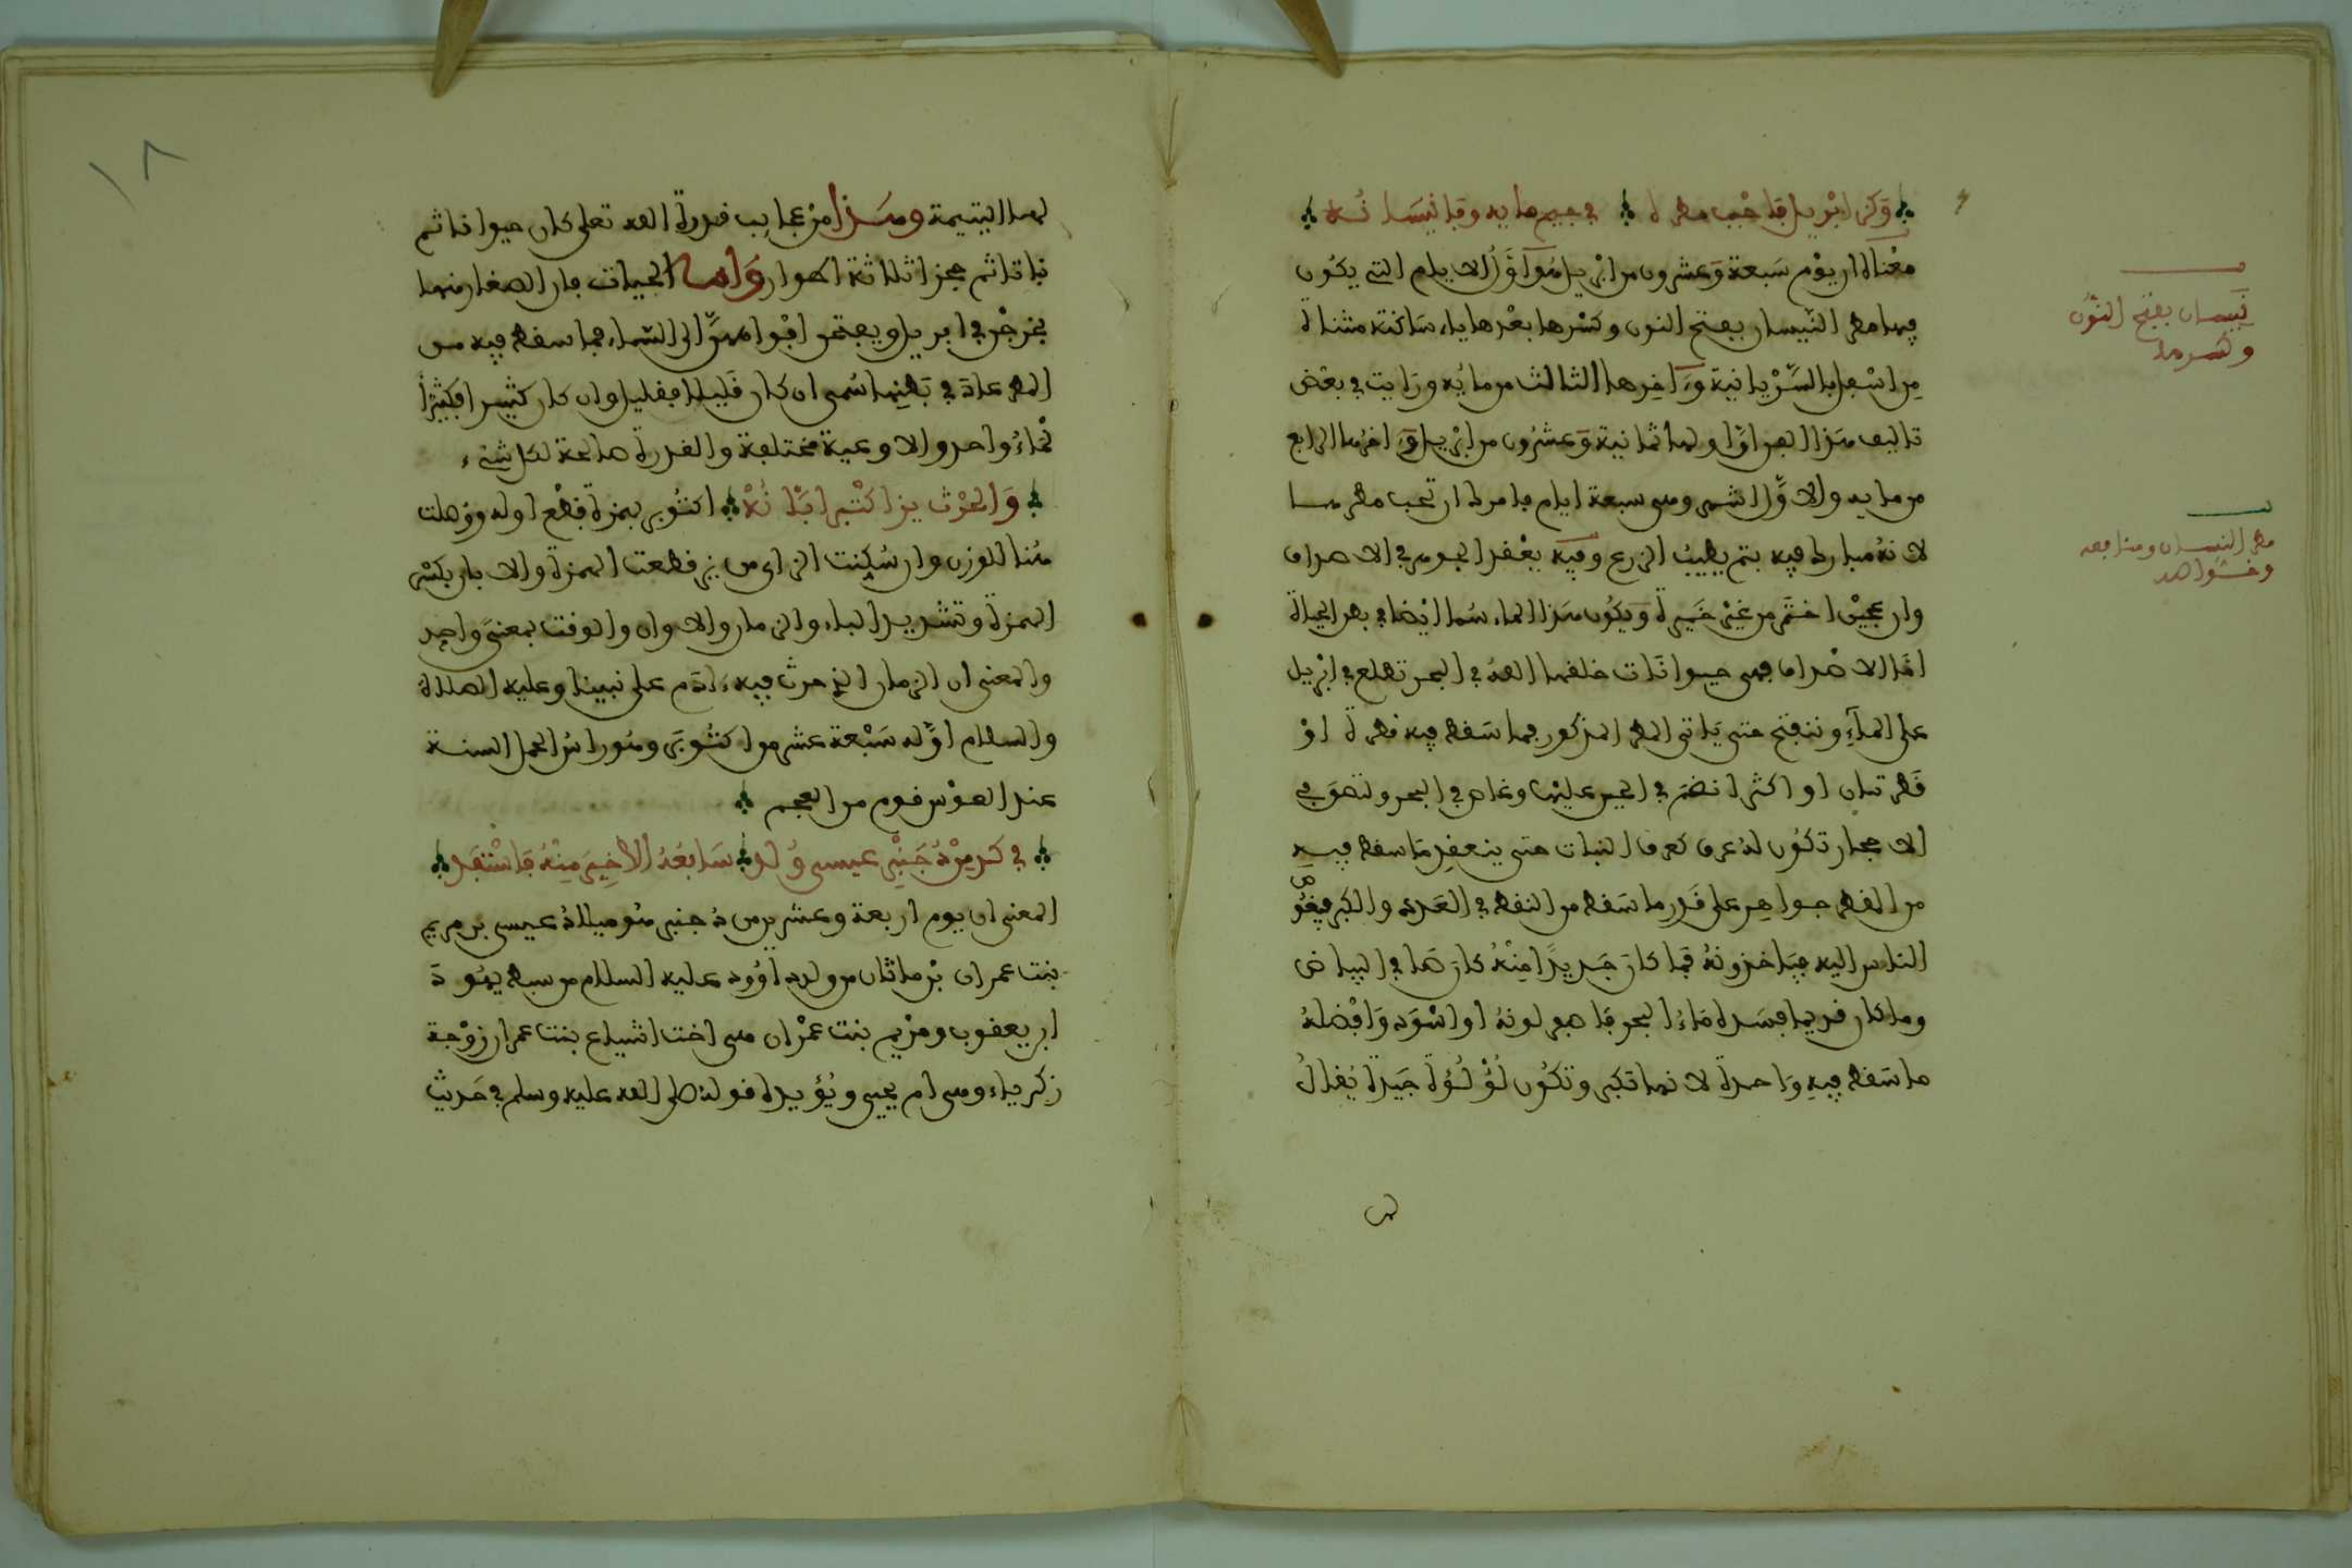 وَكَزِ ابْرِيلِ فَاحْجُب مطرَه في جيم مايه وقا نَيْسَانُه
معْناه ان يوْم سَبعة وَعشرون من ابريل هُوَ أوَّل الايام التي يكُون
فيها مطر النَّيسان بفتح النون وكسْرها بعْدها ياء ساكنة مثناة
مِن اسْفل بالسّرْيانية وءَاخِرها الثالث من مايُه ورَايت في بعْض
تاليف هَذا الفن انّ اولها ثمانية وَعشرُون من ابريل وَءاخرُها الرابع
من مايه والاوَّل اشهر وهي سبعة ايام فامرك ان تحب مطرها
لانهُ مبارك فيه يتم يطيبُ الزرع وفِيه يعْقد الجوهر في الاصداف
وان عجيْن اختَمر من غيْر خَميرة وَيَكُون هَذا الماء سُما ايْضا في بعض الحياة
امَّا الاصْداف فهي حيوانَات خلقها اللهُ في البحر تطلع في ابْريل
على المآءِ وتنفتح حتى يَاتي المطر المذكور فما سَقط فيه قطرة اوْ
قَطرتان او اكثر انضم في الحين عليْها وغاص في البحر ولصق في
الاحجار تكُون لهُ عروق كعروق النبات حتى ينعقِد مَا سقط فيهِ
من القطر جواهِر على قَدر ما سَقط من النقط في العَدد والكبر فيغُوص
الناس اليه فيَاخذونهُ فما كانَ جَديدًا مِنْهُ كان صَافي البياض
وما كان قديما فسَده مَاءُ البحر فاصفر لونهُ او اسْوَد وَافْضلهُ
ما سَقط فيهِ وَاحدة لانها تكبر وتكُون لُؤْلُؤة جَيدة يُقالُ
لها
نَيسان بفتح النوُن
وكسرها
مطر النيسان ومنافعه
وخواصه
١٨
لها اليتيمة وهَذا مِنْ عجايب قدرة الله تعلى كان حيوانا ثم
نباتا ثم حجرا ثلاثة اطوار وَأما الحيات فان الصغار منها
يخرجْن في ابريل ويفتحن افْواههنَّ الى السَّماء فما سقط فيه من
المطر عادَ في بَطنِها سُما ان كان قَليلا فقليل وان كان كثيرا فكثيْرا
فَالمَاءُ واحد والاوعية مختلفة والقدرة صالحة لكل شيْء
وَالحرْث يز اكتُبر ابَّانُهْ اكتُوبر بهمزة قطْع اوله ووصلت
هُنا للوزن وان سُكِنت الزاي من يز قطعت الهمزة والابان بكسْر
الهمزة وتشديد الباء والزمان والاوان والوقت بمعنى وَاحِد
والمعنى ان الزمان الذي حرث فيه ءادَم على نبينا وعليه الصلاة
والسلام اوَّله سَبْعة عشر من اكتُوبَر وهُو راسُ الحمل السنة
عند الفوْس قوم من العجم
في كدِ مِنْ دُجَنْبِر عيسى وُلدْ سَابعُهُ الاخِيرَ مِنْهُ فَاسْتَفِد
المعنى ان يوم اربعة وعشرين من دُجنبر هُو ميلادُ عيسى بن مريم
بنت عمران بْن ماثان من ولد داوُود عليه السلام من سبط يهُودَ
ابن يعقوب ومرْيم بنت عمْران هي اخت اشياع بنت عمران زوْجة
زكرياء وهي ام يحيى ويُؤيده قولهُ صلى الله عليه وسلم في حَديث